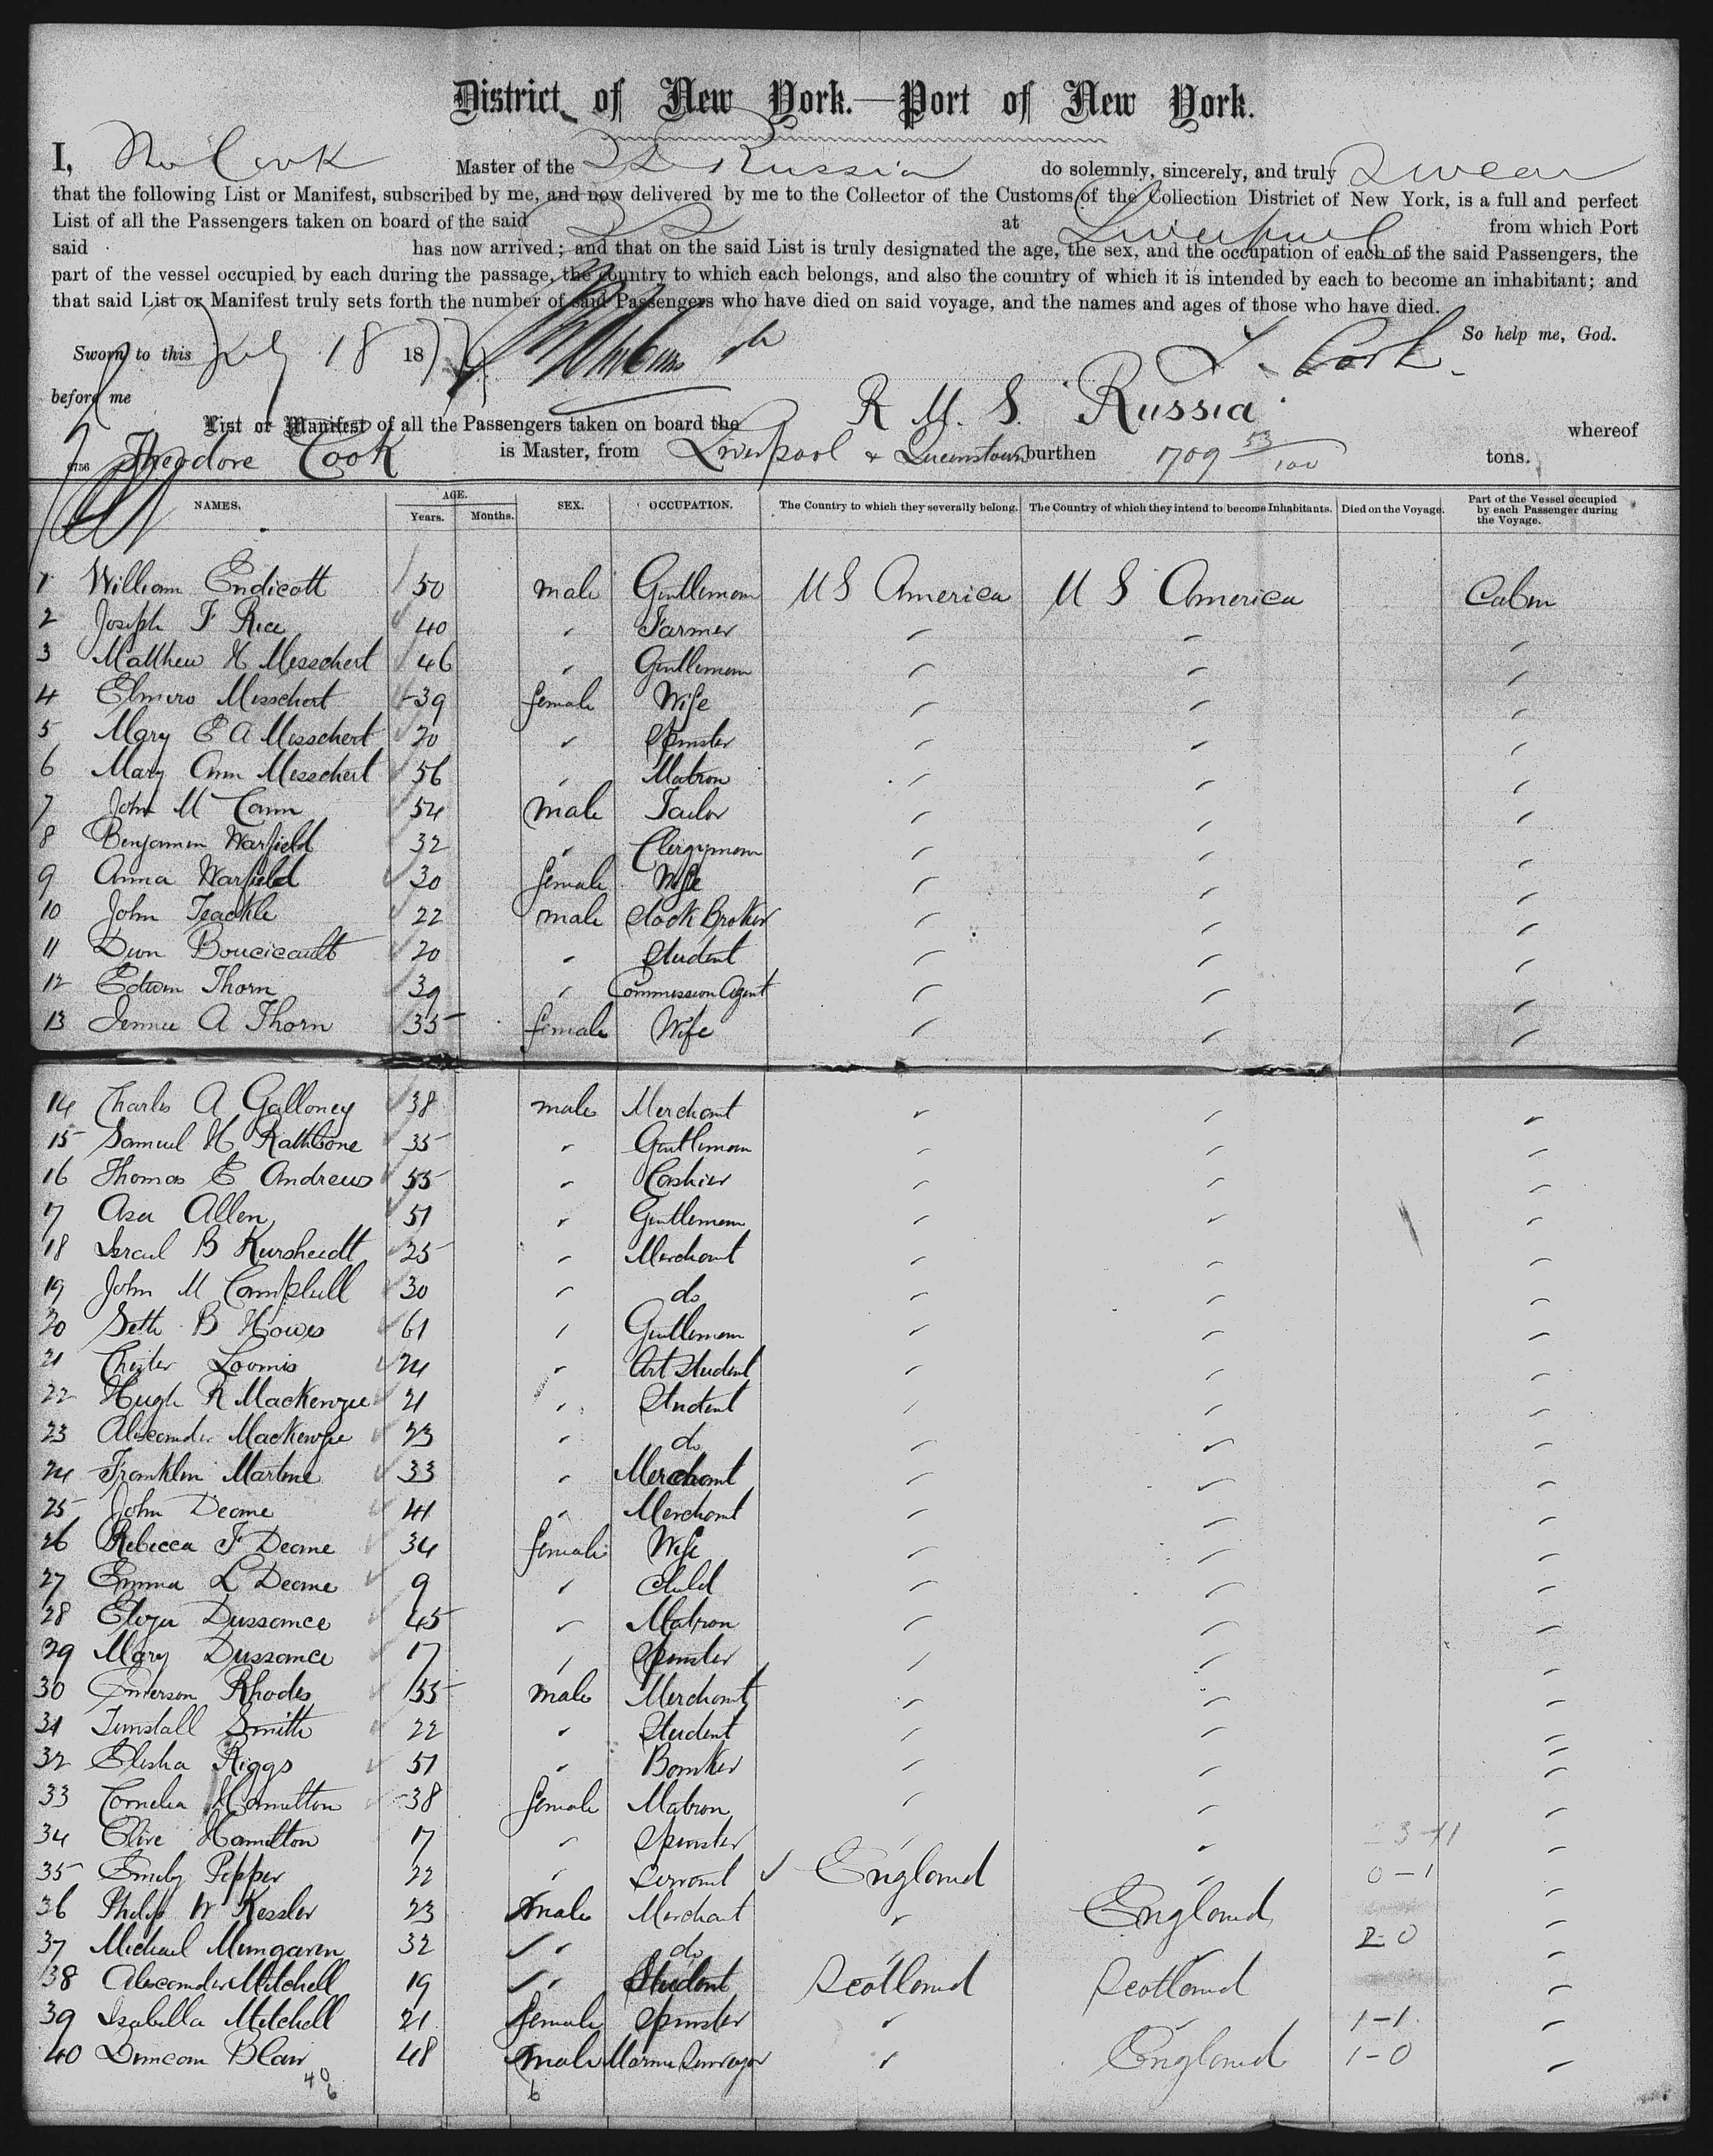 District of New York.—Port of New York.
I, Theo Cook Master of the SS Russia do solemnly, sincerely, and truly Swear
that the following List or Manifest, subscribed by me, and now delivered by me to the Collector of the Customs of the Collection District of New York, is a full and perfect
List of all the Passengers taken on board of the said at Liverpool from which Port
said has now arrived; and that on the said List is truly designated the age, the sex, and the occupation of each of the said Passengers, the
part of the vessel occupied by each during the passage, the country to which each belongs, and also the country of which it is intended by each to become an inhabitant; and
that said List or Manifest truly sets forth the number of said Passengers who have died on said voyage, and the names and ages of those who have died.
So help me, God.
Sworn to this July 18 1877 T. Cook.
before me
List or Manifest of all the Passengers taken on board the R M S Russia whereof
6756 Theodore Cook is Master, from Liverpool & Queenstown burthen 1709 53/100 tons.
NAMES. AGE. Years. Months. SEX. OCCUPATION. The Country to which they severally belong. The Country of which they intend to become Inhabitants. Died on the Voyage. Part of the Vessel occupied by each Passenger during the Voyage.
1 William Endicott 50 male Gentleman U S America U S America Cabin
2 Joseph F Rice 40 " Farmer " " "
3 Matthew H Messchert 46 " Gentleman " " "
4 Elmira Messchert 39 female Wife " " "
5 Mary E A Messchert 20 " Spinster " " "
6 Mary Ann Messchert 56 " Matron " " "
7 John M Cann 54 male Tailor " " "
8 Benjamin Warfield 32 " Clergyman " " "
9 Anna Warfield 30 female Wife " " "
10 John Teackle 22 male Stock Broker " " "
11 Dion Boucicault 20 " Student " " "
12 Edwin Thorn 39 " Commission Agent " " "
13 Jennie A Thorn 35 female Wife " " "
14 Charles A Galloney 38 male Merchant " " "
15 Samuel H Rathbone 35 " Gentleman " " "
16 Thomas E Andrews 55 " Cashier " " "
17 Asa Allen 51 " Gentleman " " "
18 Israel B Kursheedt 25 " Merchant " " "
19 John M Campbell 30 " do " " "
20 Seth B Howes 61 " Gentleman " " "
21 Chester Loomis 24 " Art Student " " "
22 Hugh R MacKenzie 21 " Student " " "
23 Alexander MacKenzie 23 " do " " "
24 Franklin Martine 33 " Merchant " " "
25 John Deane 41 " Merchant " " "
26 Rebecca F Deane 34 female Wife " " "
27 Emma L Deane 9 " Child " " "
28 Eliza Dussance 45 " Matron " " "
29 Mary Dussance 17 " Spinster " " "
30 Emerson Rhodes 55 male Merchant " " "
31 Tunstall Smith 22 " Student " " "
32 Elisha Riggs 51 " Banker " " "
33 Cornelia Hamilton 38 female Matron " " "
34 Olive Hamilton 17 " Spinster " " 23-11 "
35 Emily Pepper 22 " Servant England " 0-1 "
36 Philip W Kessler 23 male Merchant " England "
37 Michael Mungaven 32 " do " " 2-0 "
38 Alexander Mitchell 19 " Student Scotland Scotland "
39 Isabella Mitchell 21 female Spinster " " 1-1 "
40 Duncan Blair 48 male Marine Surveyor " England 1-0 "
40
6 6